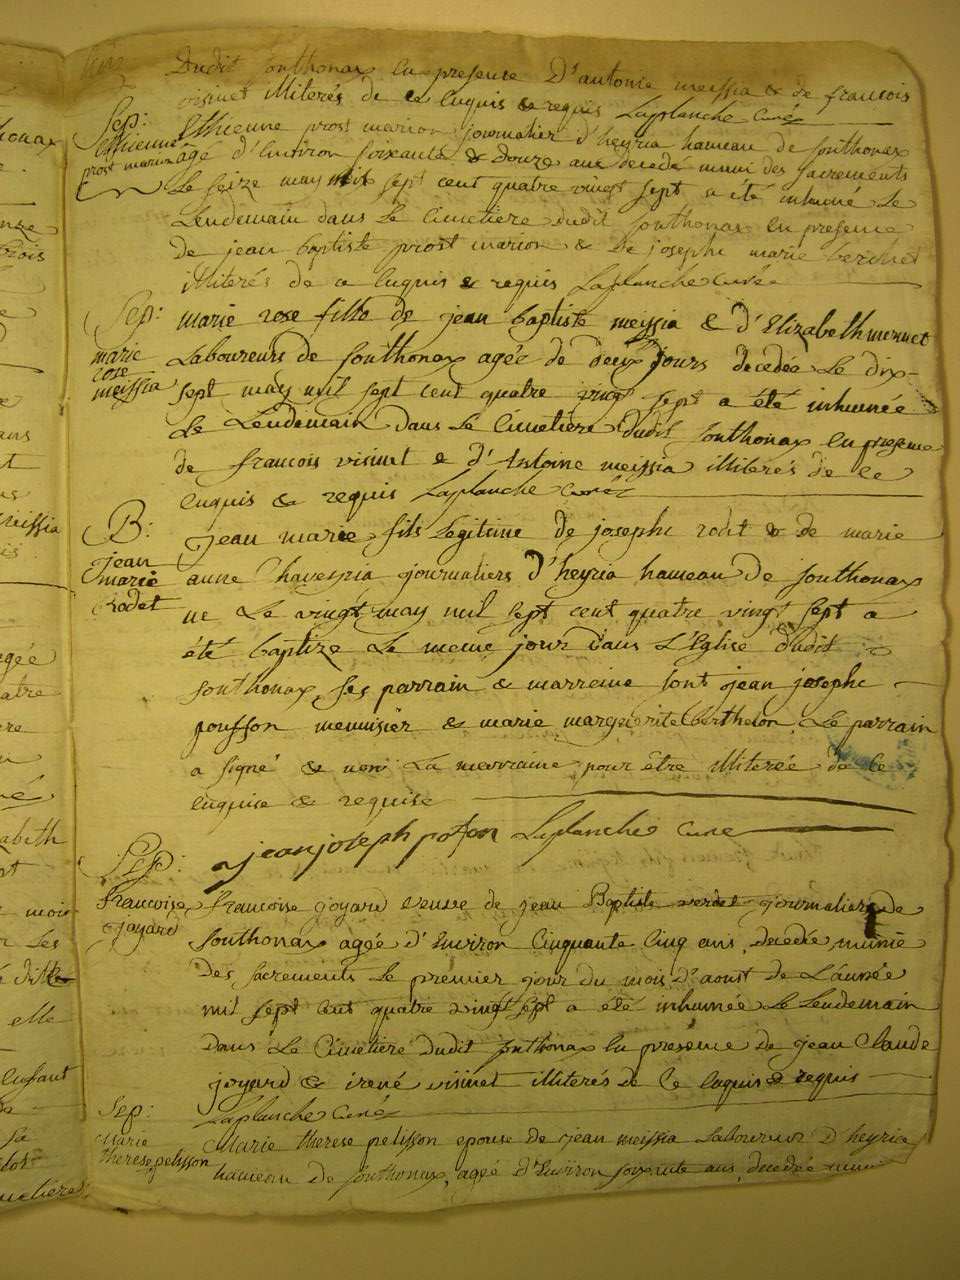 Dudit Sonthonax en presense D'antoine meissia & de francois
visinet illiterés de ce enquis & requis Laplanche Curé
Sep:
Ethienne
prost marion
Ethienne prost marion journalier d'heyria hameau de Sonthonax
agé d'Environ soixante & Douze ans decedé muni des sacrements
Le seize may mil sept cent quatre vingt sept a été inhumé Le
Lendemain dans Le Cimetiere dudit Sonthonax En presense
de jean baptiste prost marion & De joseph marie berchet
illiterés de ce Enquis & requis Laplanche curé
Sep:
marie
rose
meissia
marie rose fille de jean baptiste meissia & d'Elizabeth
Laboureurs de Sonthonax agée de deux jours decedée Le dix-
sept may mil sept cent quatre vingt sept a été inhumée
Le Lendemain Dans Le Cimetiere dudit Sonthonax En presense
de francois visinet & d'Antoine meissia illiterés de ce
Enquis & requis Laplanche Curé
B:
jean
marie
Rodet
Jean marie fils Legitime de josephe rodet & de marie
anne journaliers d'heyria hameau de Sonthonax
né Le vingt may mil sept cent quatre vingt sept a
été baptize Le meme jour Dans L'Eglise dudit
Sonthonax, ses parrain & marreine sont jean josephe
pouffon menuisier & marie marguerite berthelon, Le parrain
a signé & non La marraine pour être illiterée de ce
Enquise & requise
jean joseph pofon Laplanche Curé
Sep:
francoise
joyard
francoise joyard veuve de jean Baptiste verdet journalier de
Sonthonax agée d'Environ Cinquante Cinq ans, decedée munie
Des sacrements Le premier jour du mois D'aoust de L'année
mil sept cent quatre vingt sept a été inhumée Le Lendemain
Dans Le Cimetiere dudit Sonthonax En presense de jean Claude
joyard & irené visinet illiterés de Ce Enquis & requis
Laplanche Curé
Sep:
Marie
therese pelisson
Marie therese pelisson epouse de jean meissia Laboureur D'heyria
hameau de Sonthonax, agée d'Environ soixante ans, decedée munie